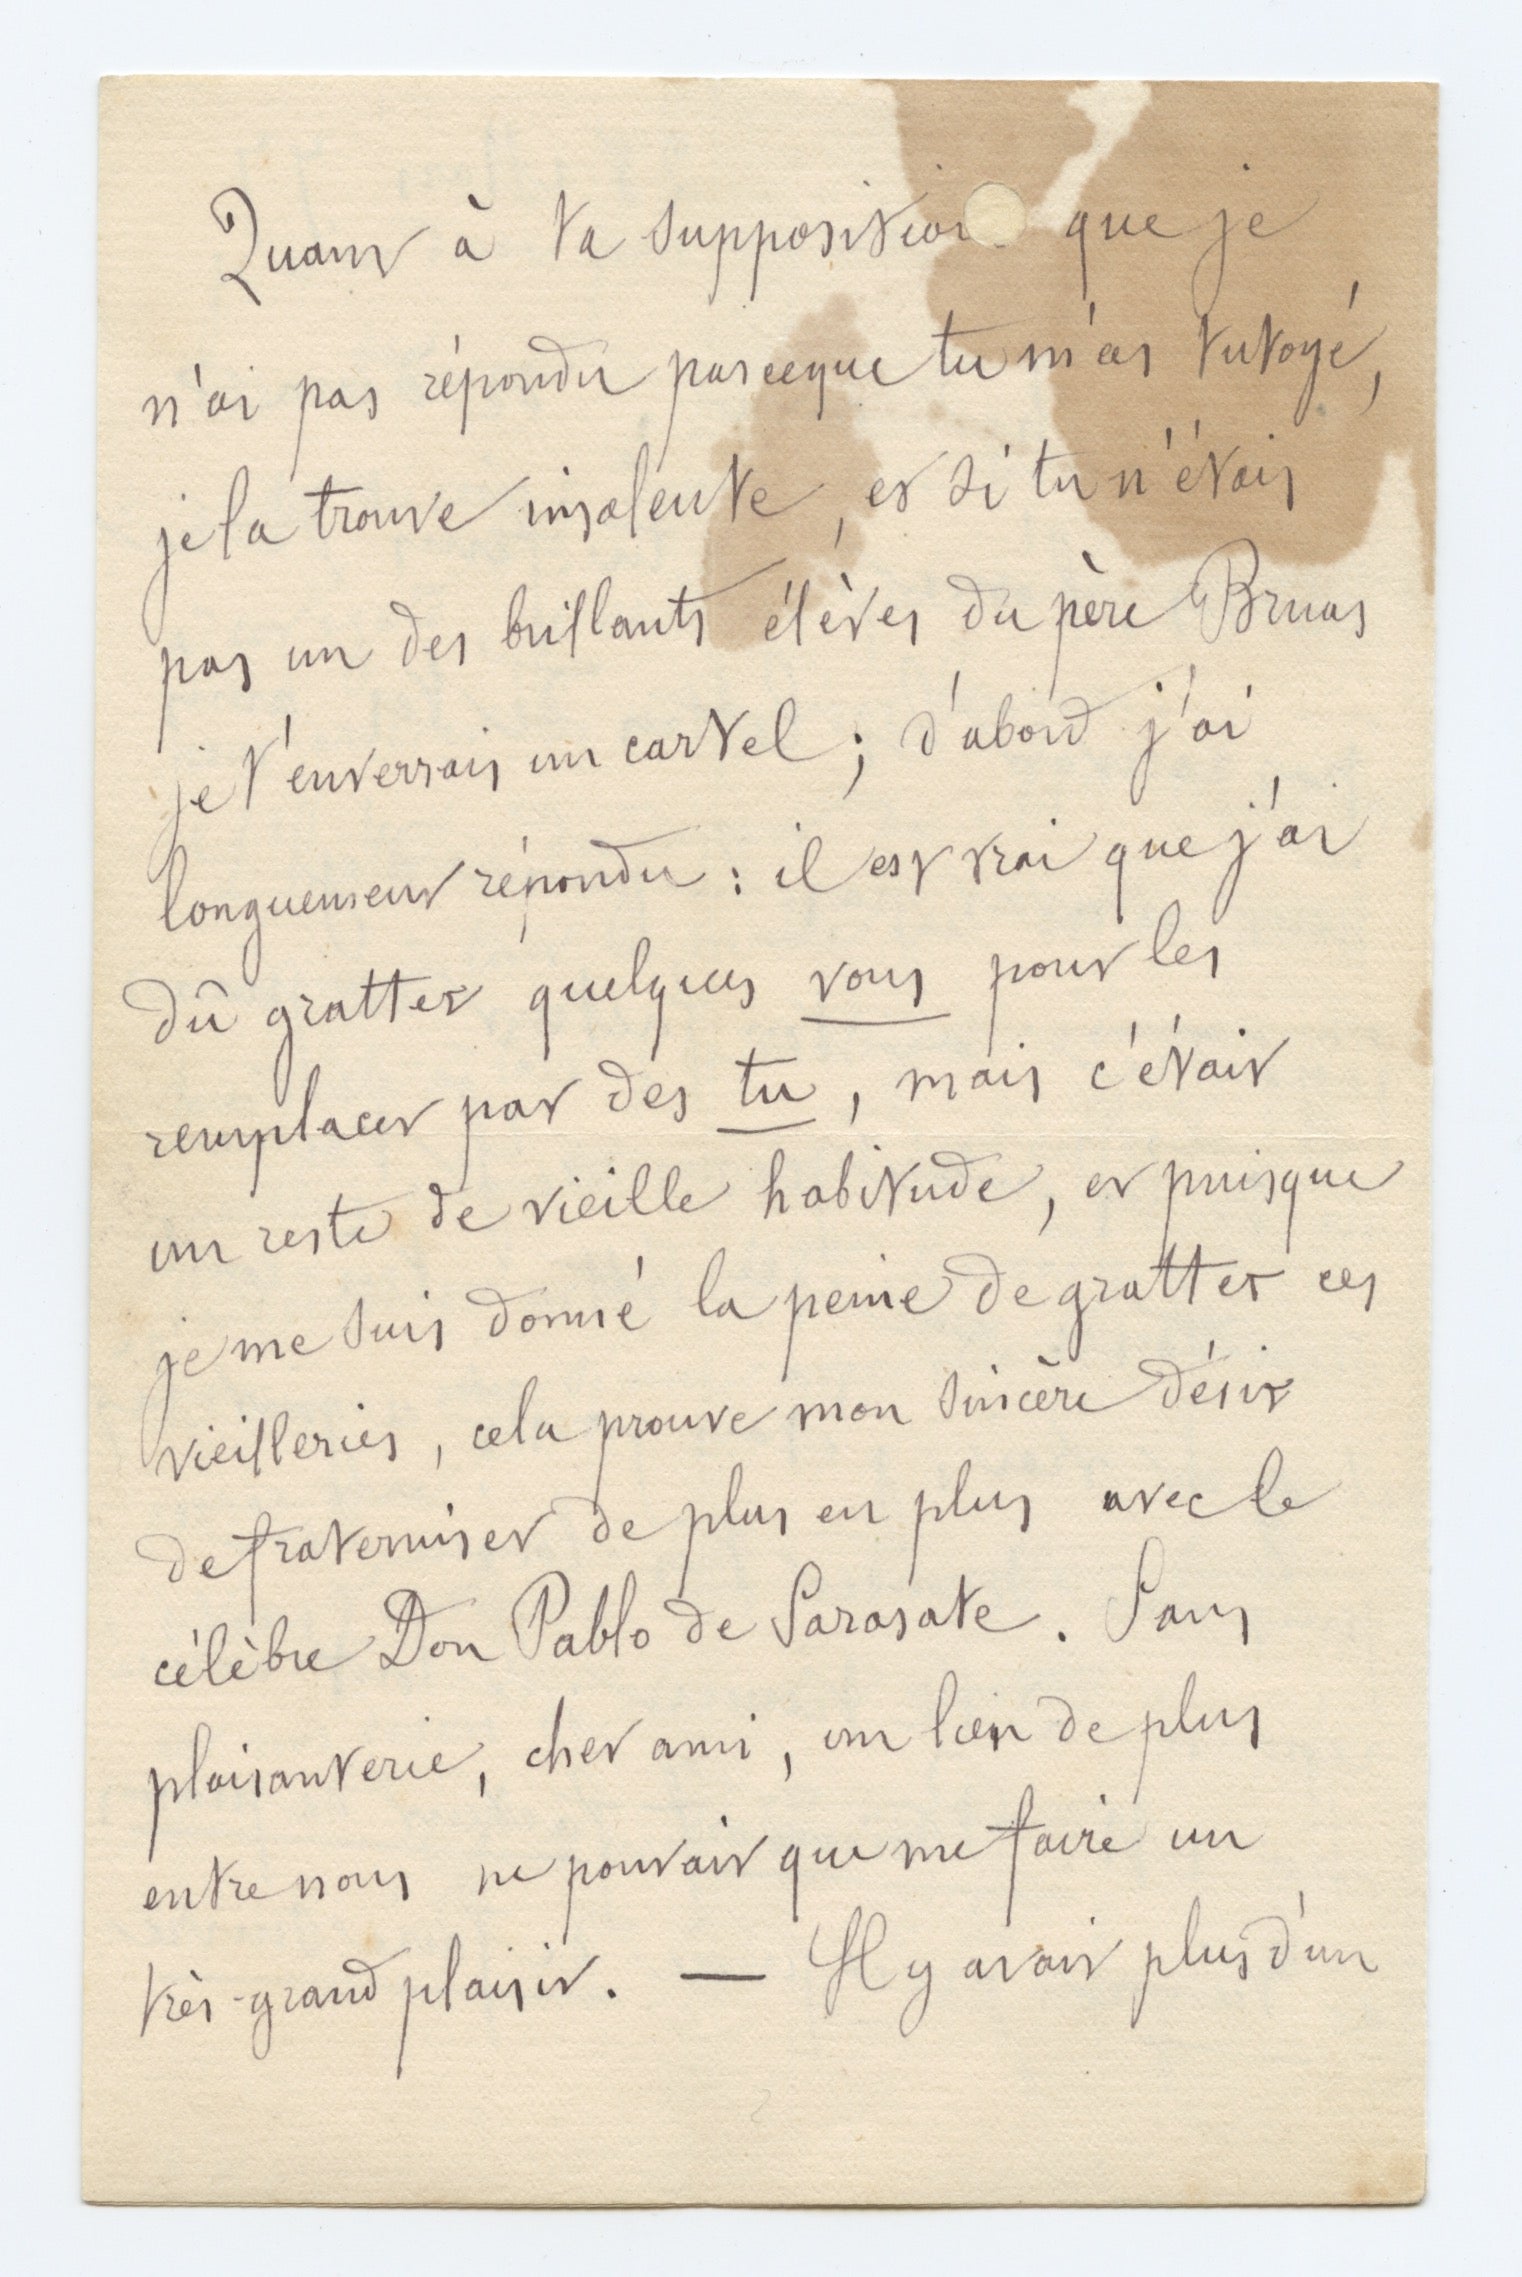 Quant à ta supposition que je
n'ai pas répondu parceque tu m'as tutoyé,
je la trouve insolente, et si tu n'étais
pas un des brillants élèves du père Bruas
je t'enverrais un cartel ; d'abord j'ai
longuement répondu : il est vrai que j'ai
dû gratter quelques vous pour les
remplacer par des tu, mais c'était
un reste de vieille habitude, et puisque
je me suis donné la peine de gratter ces
vieilleries, cela prouve mon sincère désir
de fraterniser de plus en plus avec le
célèbre Don Pablo de Sarasate. Sans
plaisanterie, cher ami, un lien de plus
entre nous ne pouvait que me faire un
très-grand plaisir. — Il y avait plus d'un